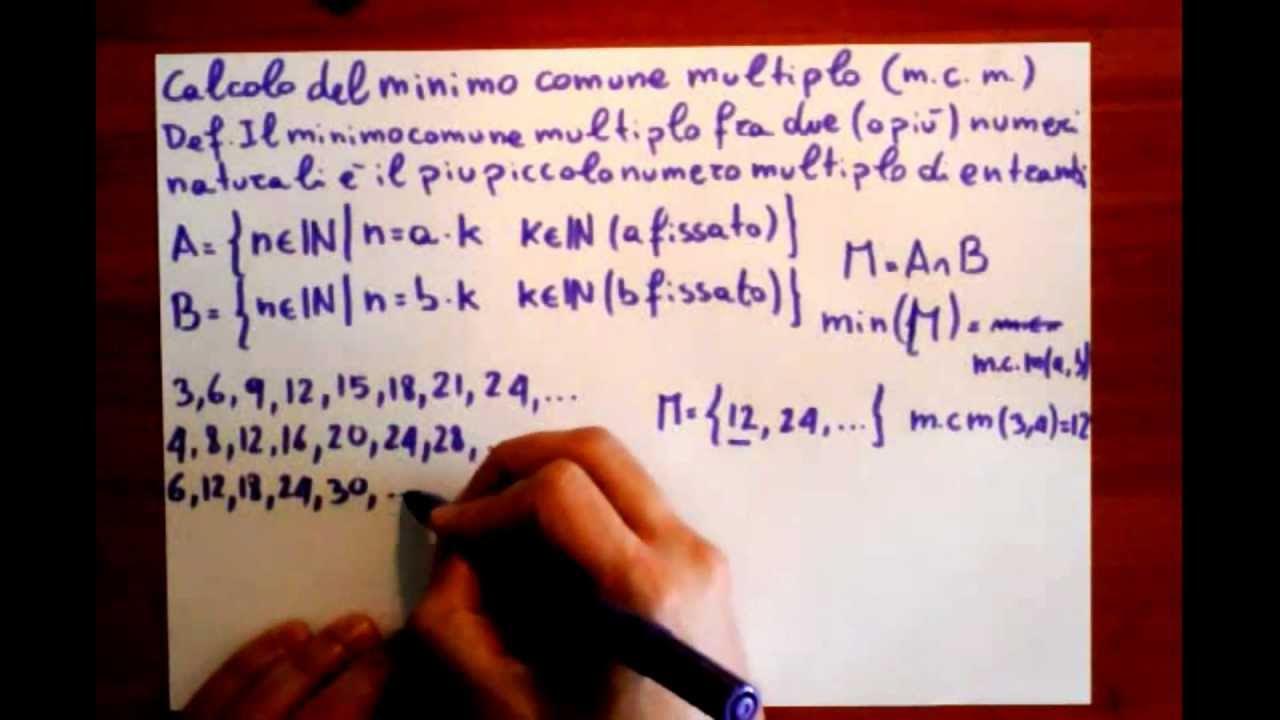 Calcolo del minimo comune multiplo (m.c.m.)
Def. Il minimo comune multiplo fra due (o più) numeri
naturali è il piu piccolo numero multiplo di entrambi
A = {n∈ℕ | n = a·k k∈ℕ (a fissato)}
B = {n∈ℕ | n = b·k k∈ℕ (b fissato)}
M = A∩B
min(M) =
m.c.m(a,b)
3,6,9,12,15,18,21,24,...
4,8,12,16,20,24,28,
6,12,18,24,30,...
M = {12,24,...} m.c.m(3,4)=12